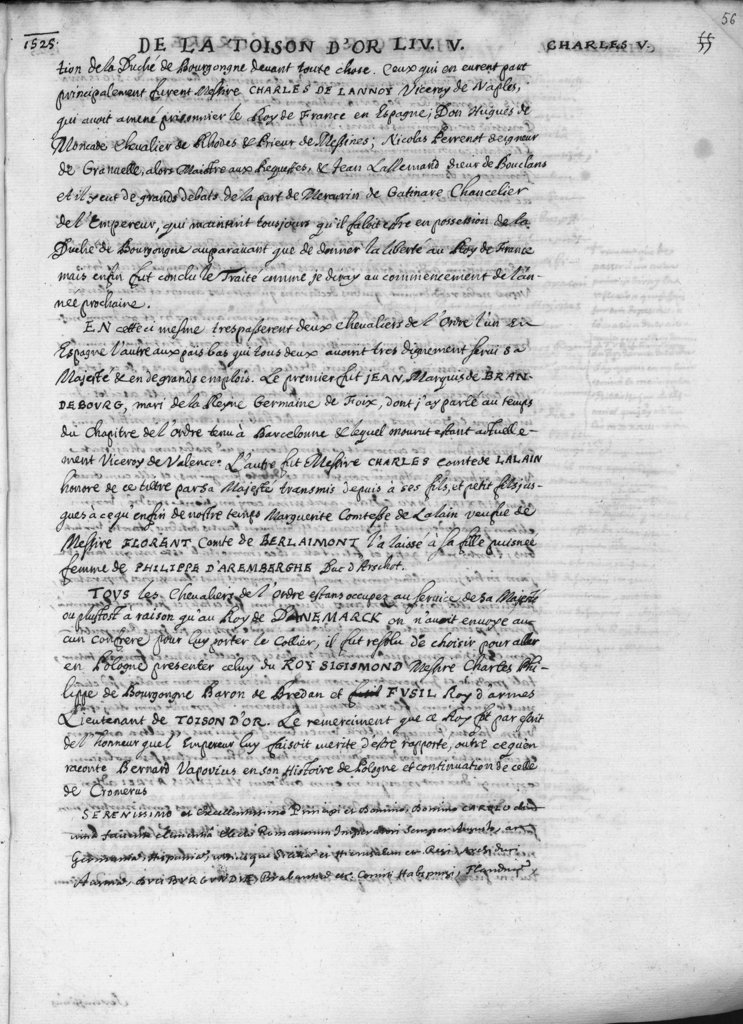 56
1525. DE LA TOISON D'OR LIV. V. CHARLES V. 55
tion de la Duché de Bourgongne devant toute chose. Ceux qui en eurent part
principalement furent Messire CHARLES DE LANNOY Viceroy de Naples,
qui avoit amené prisonnier le Roy de France en Espagne; Don Hugues de
Moncade Chevalier de Rhodes & Prieur de Messines; Nicolas Perrenot Seigneur
de Granvelle, alors Maistre aux Requestes, & Jean Lallemand Sieur de Bouclans
et il y eut de grands debats de la part de Mercurin de Gatinare Chancelier
de l'Empereur, qui maintint tousjours qu'il faloit estre en possession de la
Duché de Bourgongne auparavant que de donner la liberté au Roy de France
mais enfin fut conclu le Traité comme je diray au commencement de l'an-
née prochaine.
EN cette cy mesme trespasserent deux Chevaliers de l'Ordre l'un en
Espagne l'autre aux pais bas qui tous deux avoint tres dignement servi Sa
Majesté & en de grands emplois. Le premier fut JEAN, Marquis de BRAN-
DEBOURG, mari de la Reyne Germaine de Foix, dont j'ay parlé au temps
du Chapitre de l'Ordre tenu à Barcelonne & lequel mourut estant actuelle-
ment Viceroy de Valence. L'autre fut Messire CHARLES Comte de LALAIN
honoré de ce tiltre par Sa Majesté transmis depuis à ses fils, et petit fils jus-
ques à ce qu'enfin de nostre temps Marguerite Comtesse de Lalain veufue de
Messire FLORENT, Comte de BERLAIMONT l'a laissé à sa fille puisnée
femme de PHILIPPE D'AREMBERGHE Duc d'Arschot.
TOVS les Chevaliers de l'Ordre estans occupez au service de Sa Majesté
ou plustost à raison qu'au Roy de DANEMARCK on n'avoit envoyé au-
cun confrere pour luy porter le Collier, il fut resolu de choisir pour aller
en Pologne presenter celuy du ROY SIGISMOND Messire Charles Phi-
lippe de Bourgongne Baron de Bredan et FVSIL Roy d'armes
Lieutenant de TOISON D'OR. Le remerciment que ce Roy fit par escrit
de l'honneur que l'Empereur luy faisoit merite d'estre rapporté, outre ce qu'en
raconte Bernard Vapovius en son Histoire de Pologne et continuation de celle
de Cromerus
SERENISSIMO et Excellentissimo Principi et Domino, Domino CAROLO divina
favente clementia Electo Romanorum Imperatori Semper Augusto, ac
Germaniæ, Hispaniæ, utriusque Siciliæ et Hierusalem etc. Regi Archiduci
Austriæ, Duci BVRGVNDIÆ, Brabantiæ etc. Comiti Habspurgi, Flandriæ